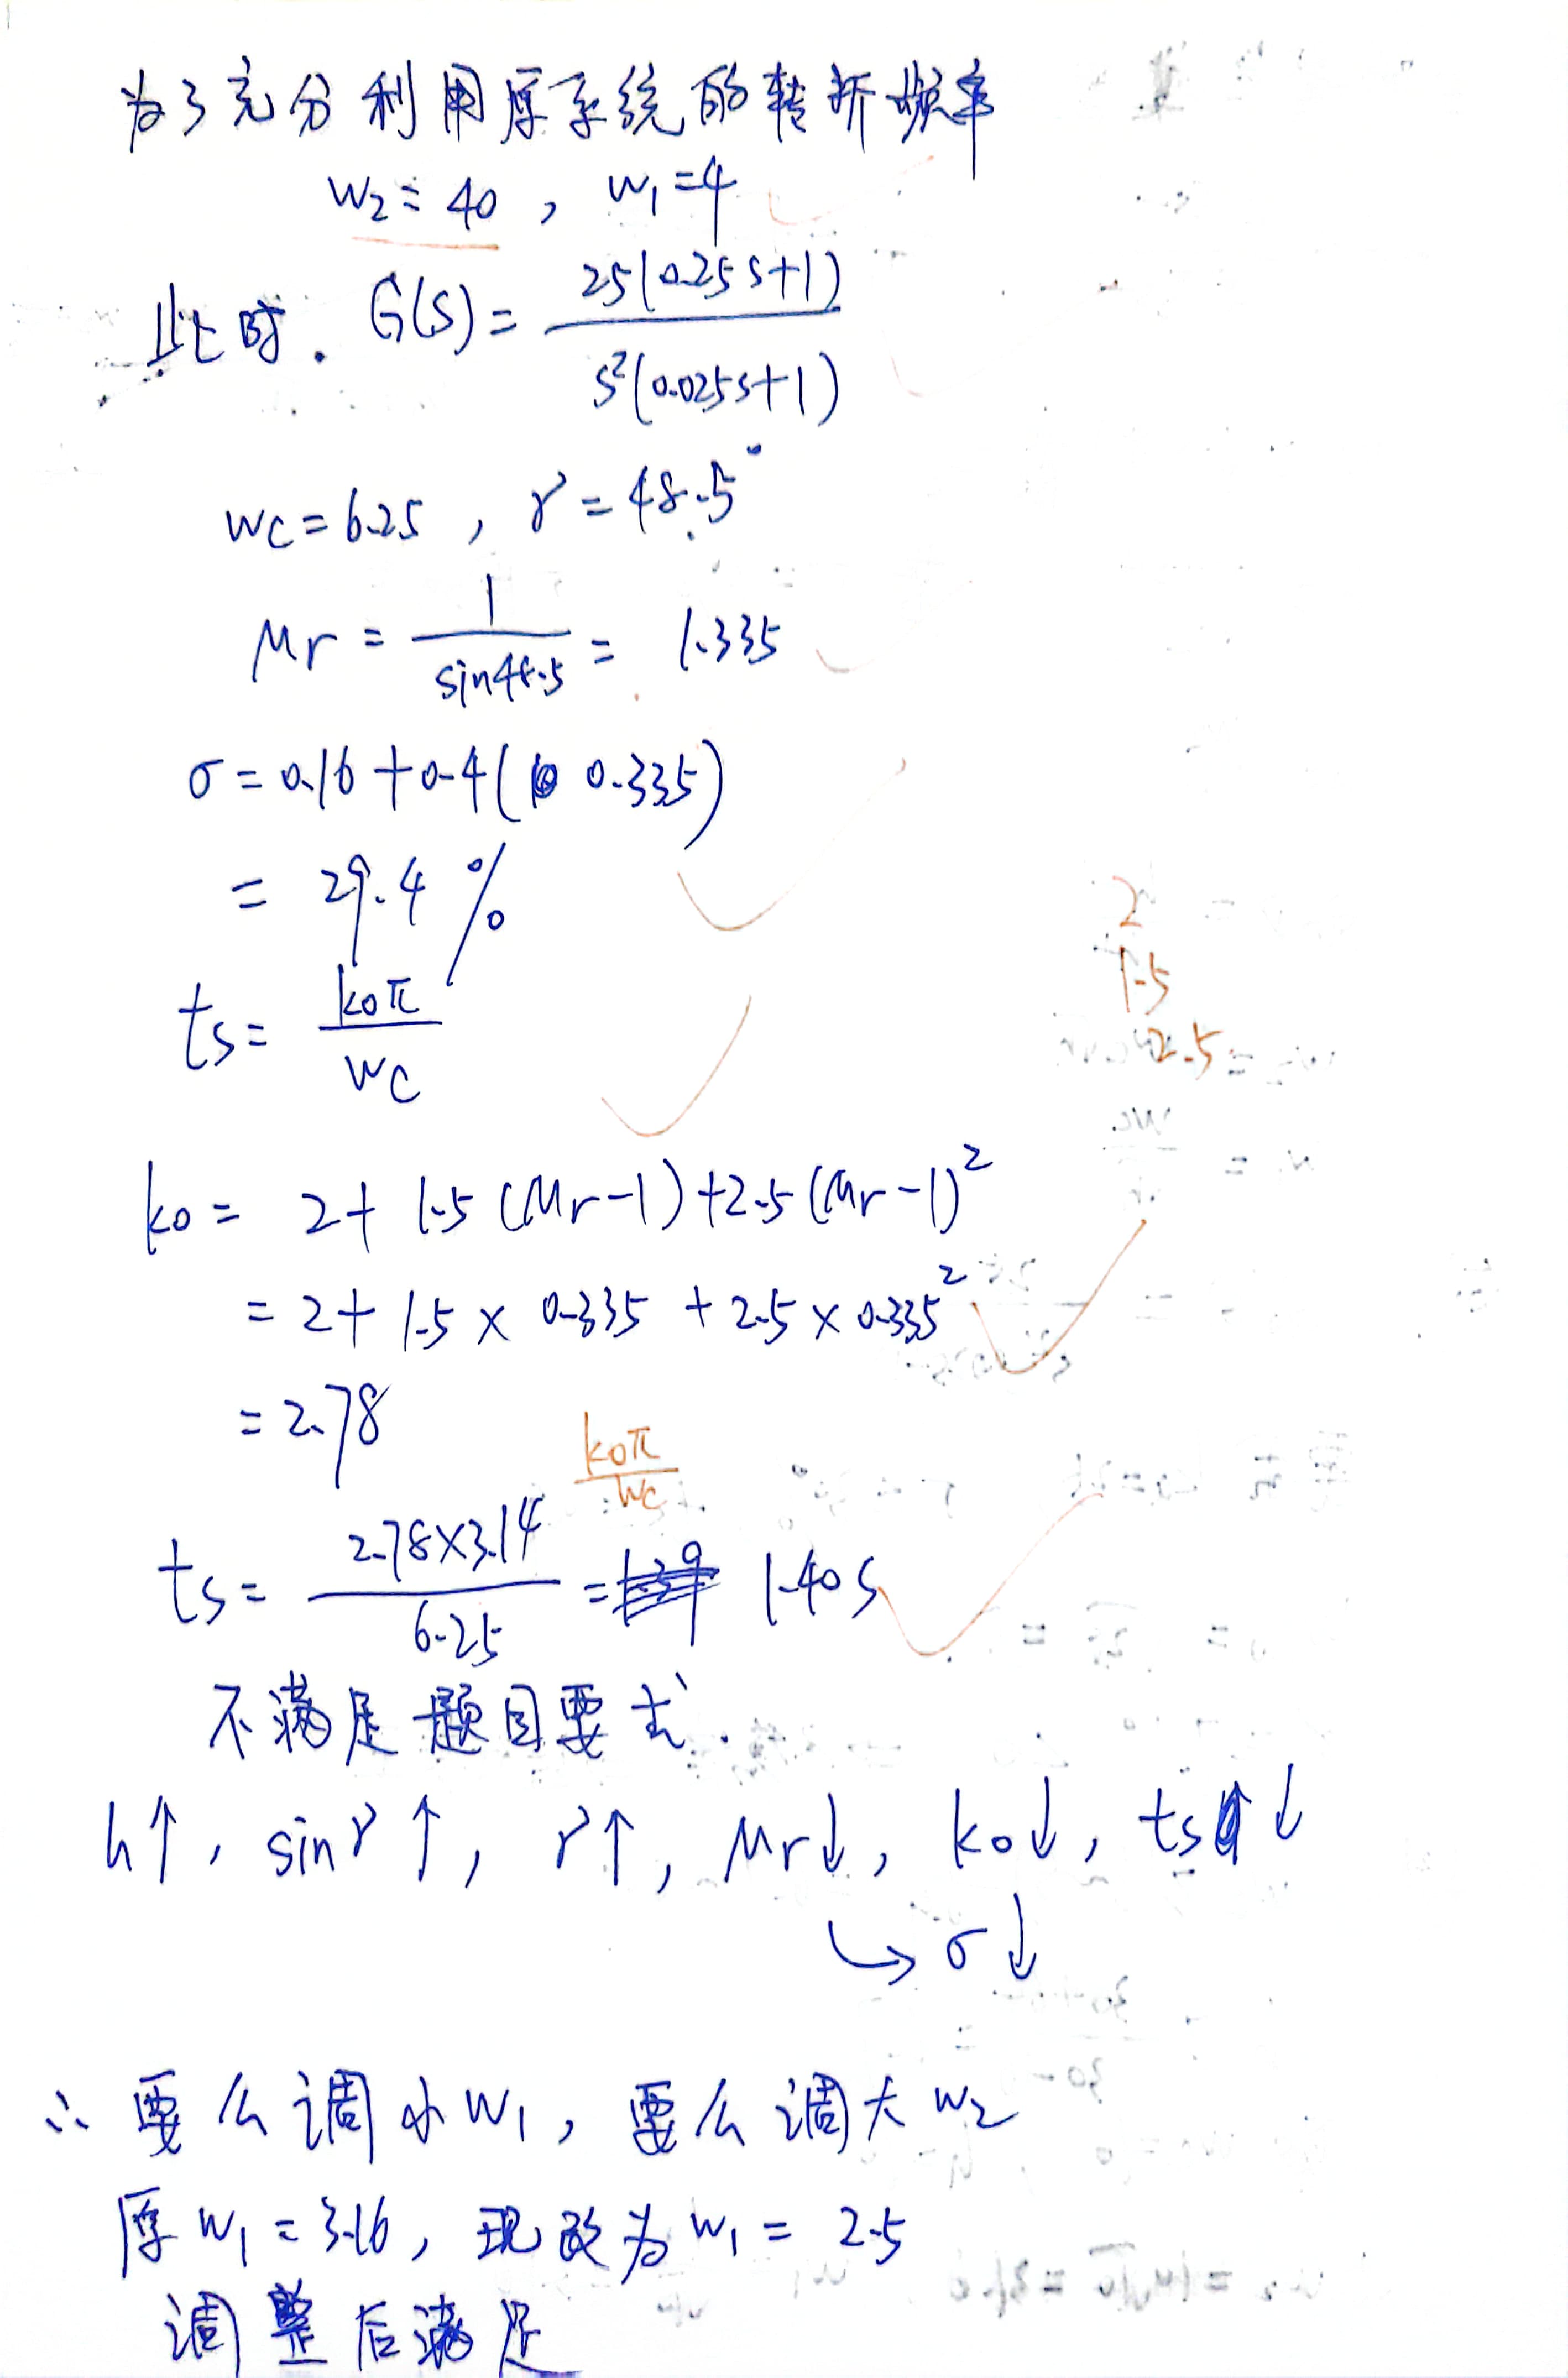 为了充分利用原系统的转折频率
w₂ = 40 , w₁ = 4
此时. G(s) = 25(0.25s+1) / s²(0.025s+1)
wc = 6.25 , γ = 48.5°
Mr = 1 / sin48.5 = 1.335
σ = 0.16 + 0.4( 0.335)
= 29.4 %
2
1.5
2.5
ts = k₀π / wc
k₀ = 2 + 1.5 (Mr-1) + 2.5 (Mr-1)²
= 2 + 1.5 × 0.335 + 2.5 × 0.335²
= 2.78
k₀π / wc
ts = 2.78×3.14 / 6.25 = 1.40s
不满足题目要求.
h↑, sinγ↑, γ↑, Mr↓, k₀↓, ts↓
↳ σ↓
∴ 要么调小w₁, 要么调大w₂
原w₁ = 3.16, 现改为w₁ = 2.5
调整后满足